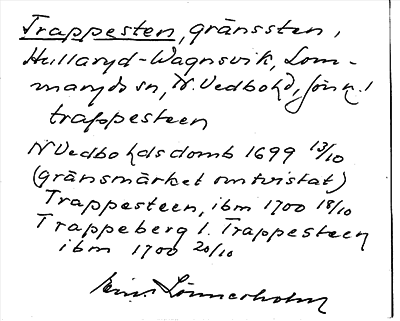 Trappesten, gränssten,
Hullaryd-Wagnsvik, Lom-
maryds sn, N. Vedbo hd, Jönk. l
trappesteen
N Vedbo hds domb 1699 13/10
(gränsmärket omtvistat)
Trappesteen, ibm 1700 18/10
Trappeberg l. Trappesteen
ibm 1700 20/10
Lönnerholm